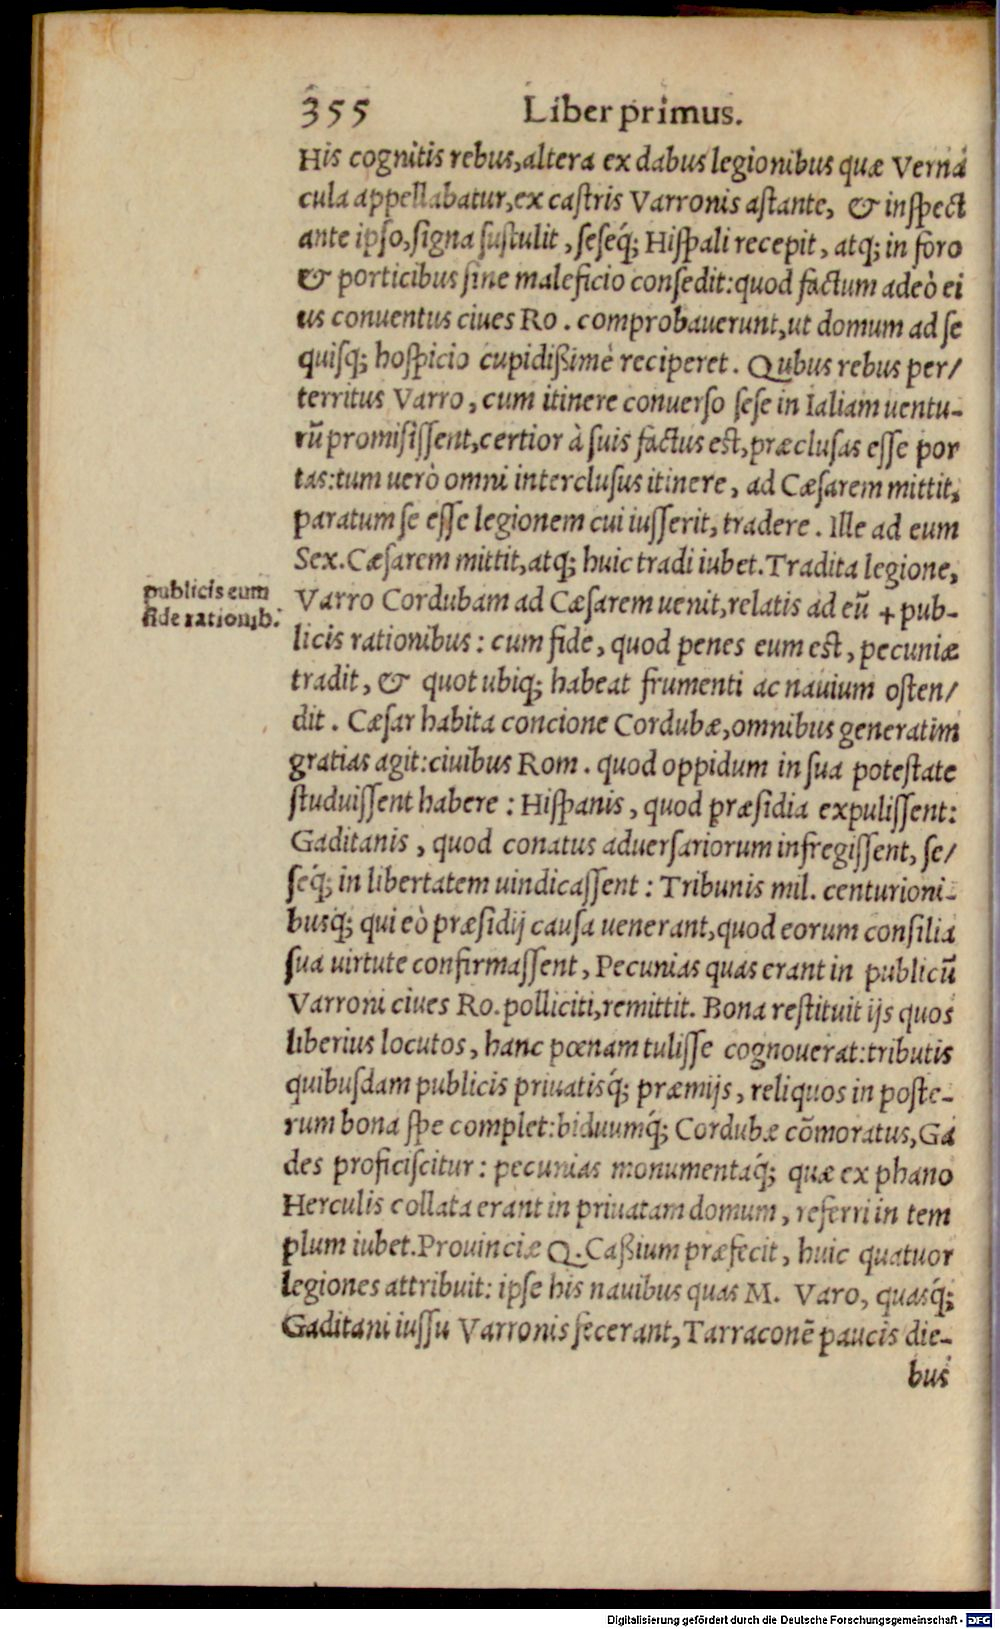 355 Liber primus.
His cognitis rebus, altera ex dabus legionibus quæ Verna
cula appellabatur, ex castris Varronis astante, & inspect
ante ipso, signa sustulit, seseq́; Hispali recepit, atq; in foro
& porticibus sine maleficio consedit: quod factum adeò ei
us conuentus ciues Ro. comprobauerunt, ut domum ad se
quisq; hospicio cupidißimè reciperet. Qubus rebus per/
territus Varro, cum itinere conuerso sese in Ialiam uentu-
rũ promisissent, certior à suis factus est, præclusas esse por
tas: tum uerò omni interclusus itinere, ad Cæsarem mittit,
paratum se esse legionem cui iusserit, tradere. Ille ad eum
Sex. Cæsarem mittit, atq; huic tradi iubet. Tradita legione,
publicis eum
fide rationib.
Varro Cordubam ad Cæsarem uenit, relatis ad eũ + pub-
licis rationibus: cum fide, quod penes eum est, pecuniæ
tradit, & quot ubiq; habeat frumenti ac nauium osten/
dit. Cæsar habita concione Cordubæ, omnibus generatim
gratias agit: ciuibus Rom. quod oppidum in sua potestate
studuissent habere: Hispanis, quod præsidia expulissent:
Gaditanis, quod conatus aduersariorum infregissent, se/
seq́; in libertatem uindicassent: Tribunis mil. centurioni-
busq́; qui eò præsidij causa uenerant, quod eorum consilia
sua uirtute confirmassent, Pecunias quas erant in publicũ
Varroni ciues Ro. polliciti, remittit. Bona restituit ijs quos
liberius locutos, hanc pœnam tulisse cognouerat: tributis
quibusdam publicis priuatisq́; præmijs, reliquos in poste-
rum bona spe complet: biduumq́; Cordubæ cõmoratus, Ga
des proficiscitur: pecunias monumentaq́; quæ ex phano
Herculis collata erant in priuatam domum, referri in tem
plum iubet. Prouinciæ Q. Caßium præfecit, huic quatuor
legiones attribuit: ipse his nauibus quas M. Varo, quasq́;
Gaditani iussu Varronis fecerant, Tarraconẽ paucis die-
bus
Digitalisierung gefördert durch die Deutsche Forschungsgemeinschaft - DFG